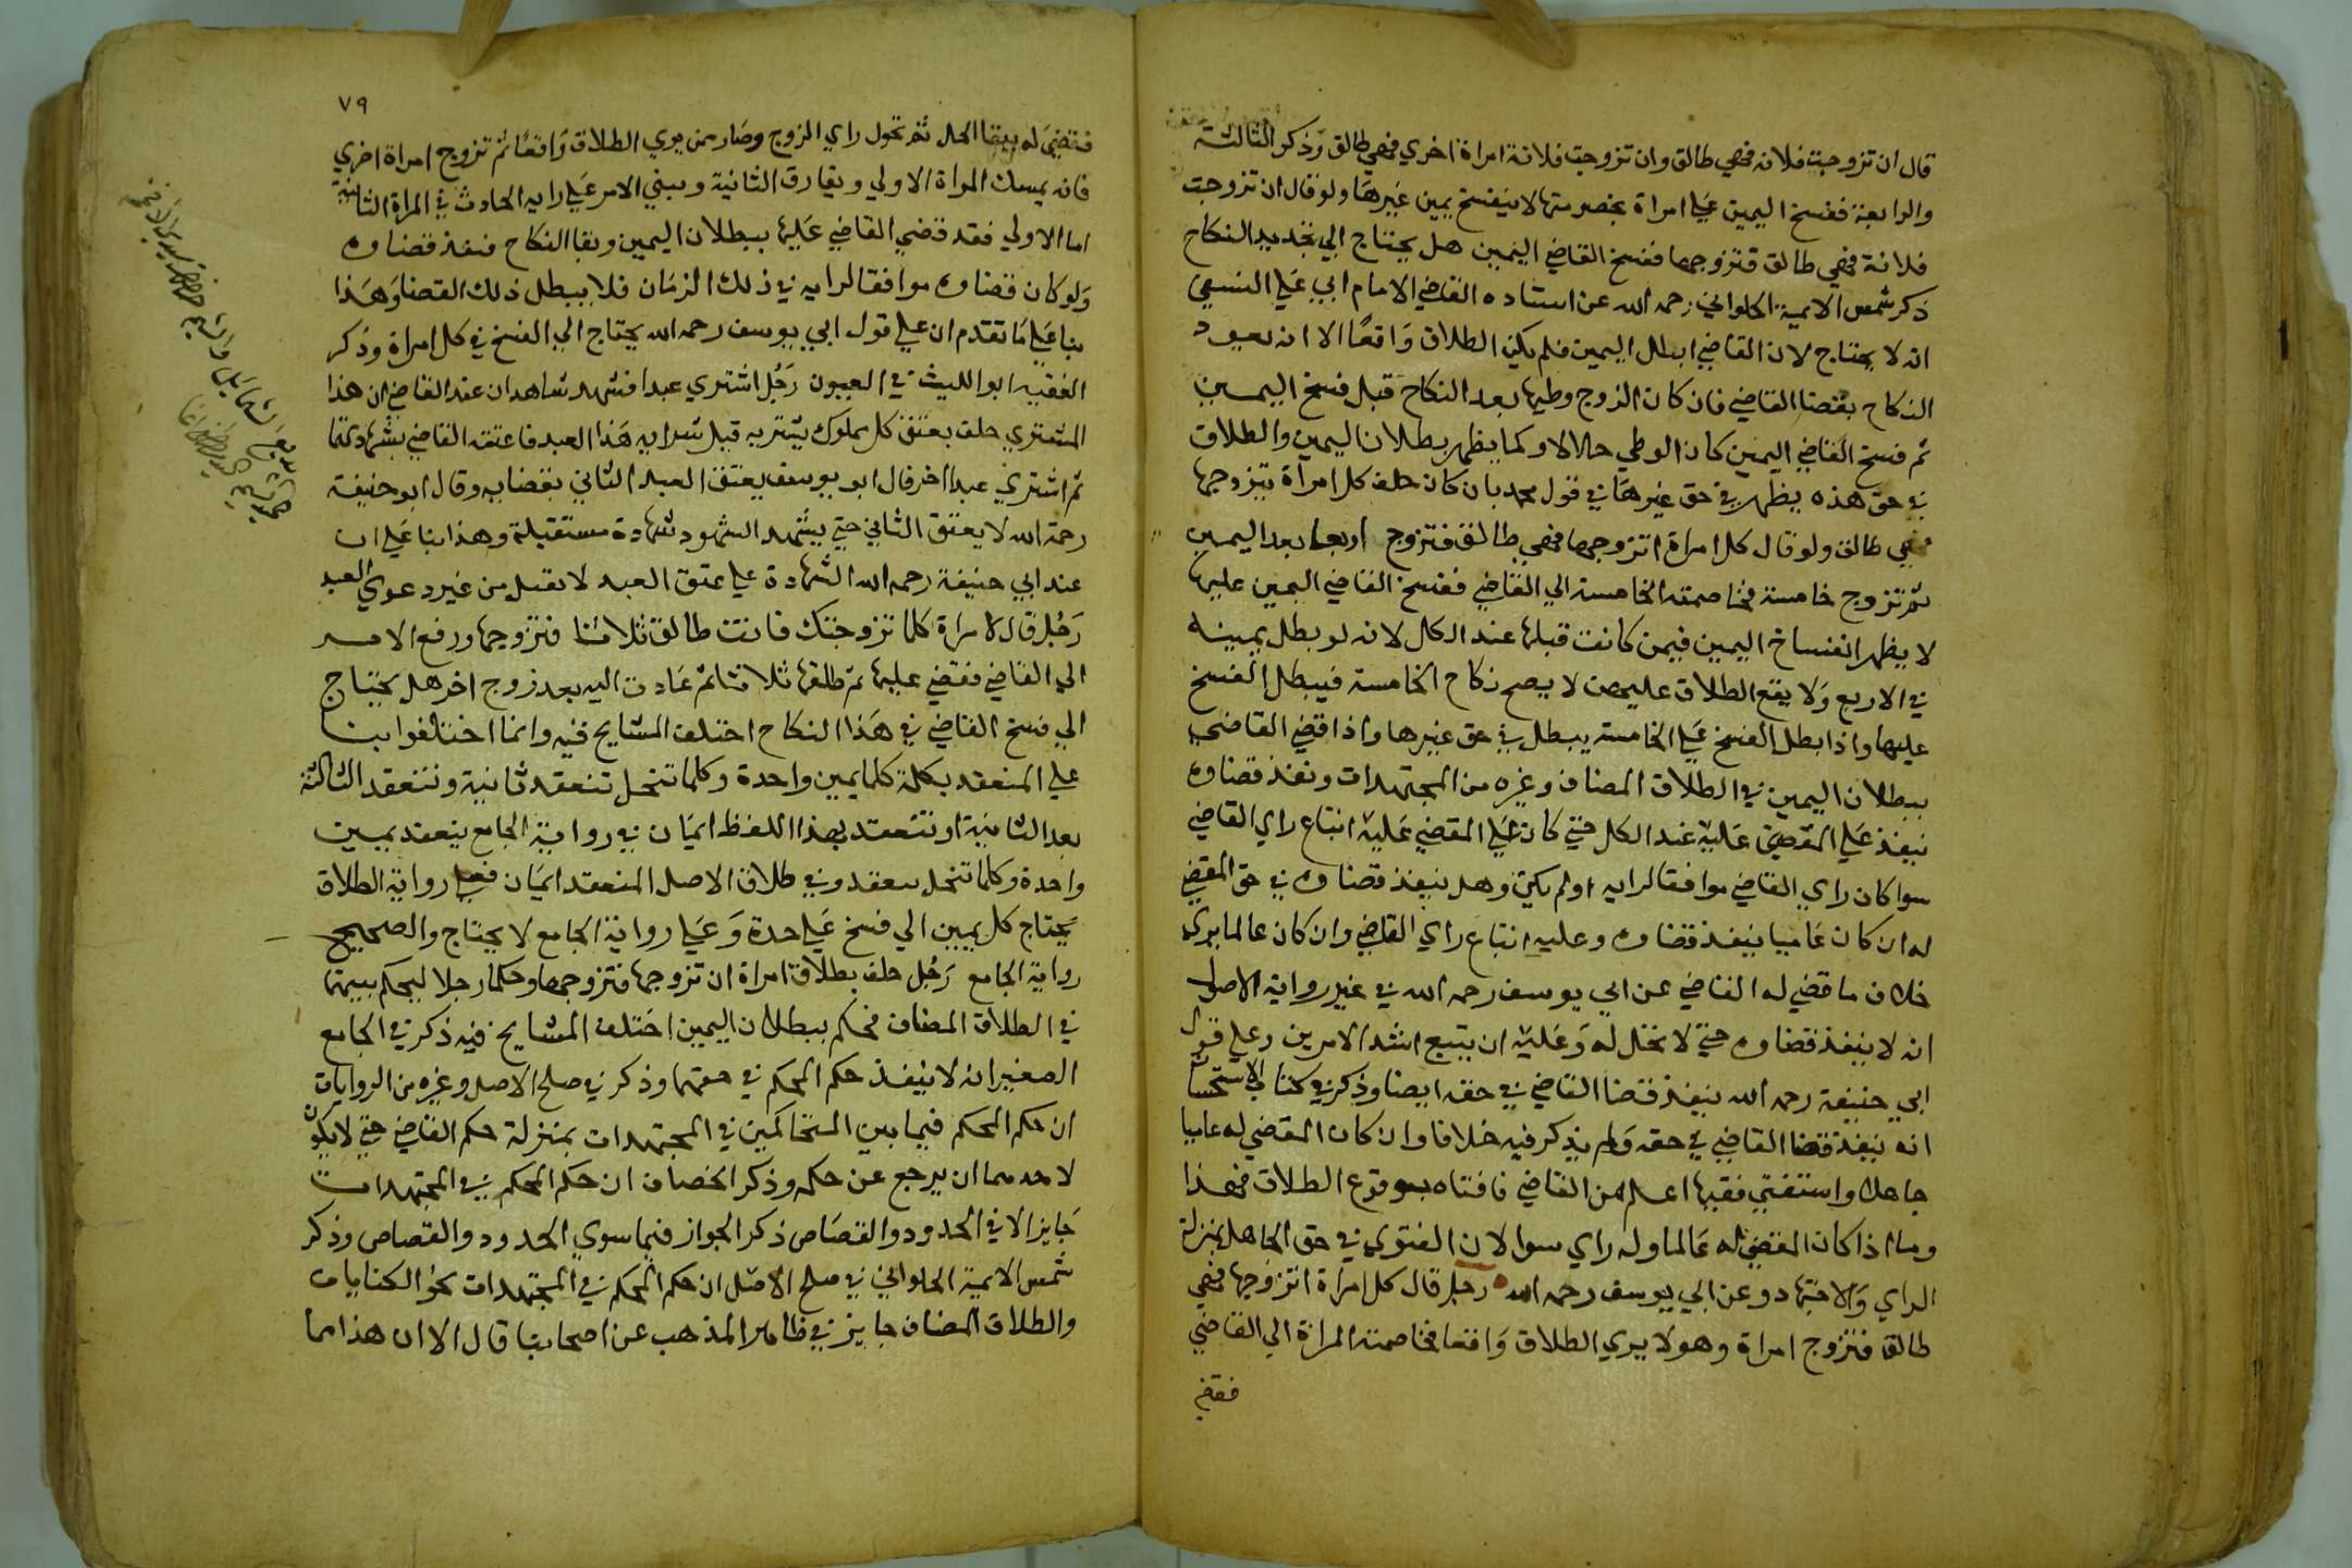 قال ان تزوجت فلانه فهي طالق وان تزوجت فلانة امراة اخري فهي طالق وذكر الثالثة
والرابعة ففسخ اليمين علي امراة بخصومتها لا ينفسخ يمين غيرها ولو قال ان تزوجت
فلانة فهي طالق فتزوجها ففسخ القاضي اليمين هل يحتاج الي تجديد النكاح
ذكر شمس الايمة الحلواني رحمه الله عن استاده القاضي الامام ابي علي النسفي
انه لا يحتاج لان القاضي ابطل اليمين فلم يكن الطلاق واقعًا الا انه يعود
النكاح بقضا القاضي فان كان الزوج وطيها بعد النكاح قبل فسخ اليمين
ثم فسخ القاضي اليمين كان الوطي حلالا وكما يظهر بطلان اليمين والطلاق
في حق هذه يظهر في حق غيرها في قول محمد بان كان حلف كل امراة يتزوجها
فهي طالق ولو قال كل امراة اتزوجها فهي طالق فتزوج اربعا بعد اليمين
ثم تزوج خامسة فخاصمته الخامسة الي القاضي ففسخ القاضي اليمين عليها
لا يظهر انفساخ اليمين فيمن كانت قبلها عند الكل لانه لو بطل يمينه
في الاربع ولا يقع الطلاق عليهن لا يصح نكاح الخامسة فيبطل الفسخ
عليها واذا بطل الفسخ علي الخامسة يبطل في حق غيرها واذا قضي القاضي
ببطلان اليمين في الطلاق المضاف وغيره من المجتهدات ونفذ قضاوه
ينفذ علي المقضي عليه عند الكل حتي كان علي المقضي عليه اتباع راي القاضي
سوا كان راي القاضي موافقا لرايه او لم يكن وهل ينفذ قضاوه في حق المقضي
له ان كان عاميا ينفذ قضاوه وعليه اتباع راي القاضي وان كان عالما يري
خلاف ما قضي له القاضي عن ابي يوسف رحمه الله في غير رواية الاصول
انه لا ينفذ قضاوه حتي لا تحل له وعليه ان يتبع اشد الامرين وعلي قول
ابي حنيفة رحمه الله ينفذ قضا القاضي في حقه ايضا وذكر في كتاب الاستحسان
انه ينفذ قضا القاضي في حقه ولم يذكر فيه خلافا وان كان المقضي له عاميا
جاهلا واستفتي فقيها اعلم من القاضي فافتاه بوقوع الطلاق فهذا
وما اذا كان المقضي له عالما وله راي سوا لان الفتوي في حق الجاهل بمنزلة
الراي والاجتهاد وعن ابي يوسف رحمه الله رجل قال كل امراة اتزوجها فهي
طالق فتزوج امراة وهو لا يري الطلاق واقعا فخاصمته المراة الي القاضي
فقضي
٧٩
فقضي له ببقا الحل ثم تحول راي الزوج وصار ممن يري الطلاق واقعًا ثم تزوج امراة اخري
فانه يمسك المراة الاولي ويفارق الثانية ويبني الامر علي رايه الحادث في المراة الثانية
اما الاولي فقد قضي القاضي عليها ببطلان اليمين وبقا النكاح فنفذ قضاوه
ولو كان قضاوه موافقا لرايه في ذلك الزمان فلا يبطل ذلك القضا وهذا
بنا علي ما تقدم ان علي قول ابي يوسف رحمه الله يحتاج الي الفسخ في كل امراة وذكر
الفقيه ابو الليث في العيون رجل اشتري عبدا فشهد شاهدان عند القاضي ان هذا
المشتري حلف بعتق كل مملوك يشتريه قبل شرايه هذا العبد فاعتقه القاضي بشهادتهما
ثم اشتري عبدا اخر قال ابو يوسف يعتق العبد الثاني بقضايه وقال ابو حنيفة
رحمه الله لا يعتق الثاني حتي يشهد الشهود شهادة مستقبلة وهذا بنا علي ان
عند ابي حنيفة رحمه الله الشهادة علي عتق العبد لا تقبل من غير دعوي العبد
رجل قال لامراة كلما تزوجتك فانت طالق ثلاثا فتزوجها ورفع الامر
الي القاضي فقضي عليها ثم طلقها ثلاثا ثم عادت اليه بعد زوج اخر هل يحتاج
الي فسخ القاضي في هذا النكاح اختلف المشايخ فيه وانما اختلفوا بنا
علي المنعقد بكلمة كلما يمين واحدة وكلما تنحل تنعقد ثانية وتنعقد الثالثة
بعد الثانية او تنعقد بهذا اللفظ ايمان في رواية الجامع ينعقد يمين
واحدة وكلما تنحل ينعقد وفي طلاق الاصل المنعقد ايمان فعلي رواية الطلاق
يحتاج كل يمين الي فسخ علي حدة وعلي رواية الجامع لا يحتاج والصحيح
رواية الجامع رجل حلف بطلاق امراة ان تزوجها فتزوجها وحكما رجلا ليحكم بينهما
في الطلاق المضاف فحكم ببطلان اليمين اختلف المشايخ فيه ذكر في الجامع
الصغير انه لا ينفذ حكم المحكم في حقهما وذكر في صلح الاصل وغيره من الروايات
ان حكم المحكم فيما بين المتحاكمين في المجتهدات بمنزلة حكم القاضي حتي لا يكون
لاحدهما ان يرجع عن حكمه وذكر الخصاف ان حكم المحكم في المجتهدات
جايز الا في الحدود والقصاص ذكر الجواز فيما سوي الحدود والقصاص وذكر
شمس الايمة الحلواني في صلح الاصل ان حكم المحكم في المجتهدات نحو الكنايات
والطلاق المضاف جايز في ظاهر المذهب عن اصحابنا قال الا ان هذا مما